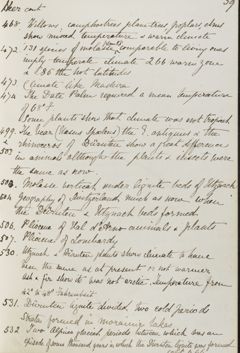 Heer cont 39
468. Willows, camphortrees, planetrees, poplars, elms
show mixed temperature & warm climate
472 131 genera of molasse plants comparable to living ones
imply temperate climate - 266 warm zone
& 85 the hot latitudes
473 Climate like Madeira
474 The Date Palm required a mean temperature
of 68° F.
Some plants show that climate was not Tropical
499. The bear (Ursus spelaeus) the E. antiquus & the
rhinoceros of Dürnten show a great difference
507 in animals although the plants & insects were
the same as now
503. Molasse vertical under lignite beds of Utznach
504 Geography of Switzerland much as now when
the Dürnten & Utznach beds formed
506. Pliocene of Val d'Arno animals & plants
507. Pliocene of Lombardy
530 Utznach & Dürnten plants show climate to have
been the same as at present or not warmer
ash & fir show it was not arctic. Temperature from
42° to 48° Fahrenheit
531. Dürnten lignite divided two cold periods
Strata formed in morainic lakes
532 Two Alpine glacial periods between which was an
episode of some thousand years in which the Dürnten lignite was formed